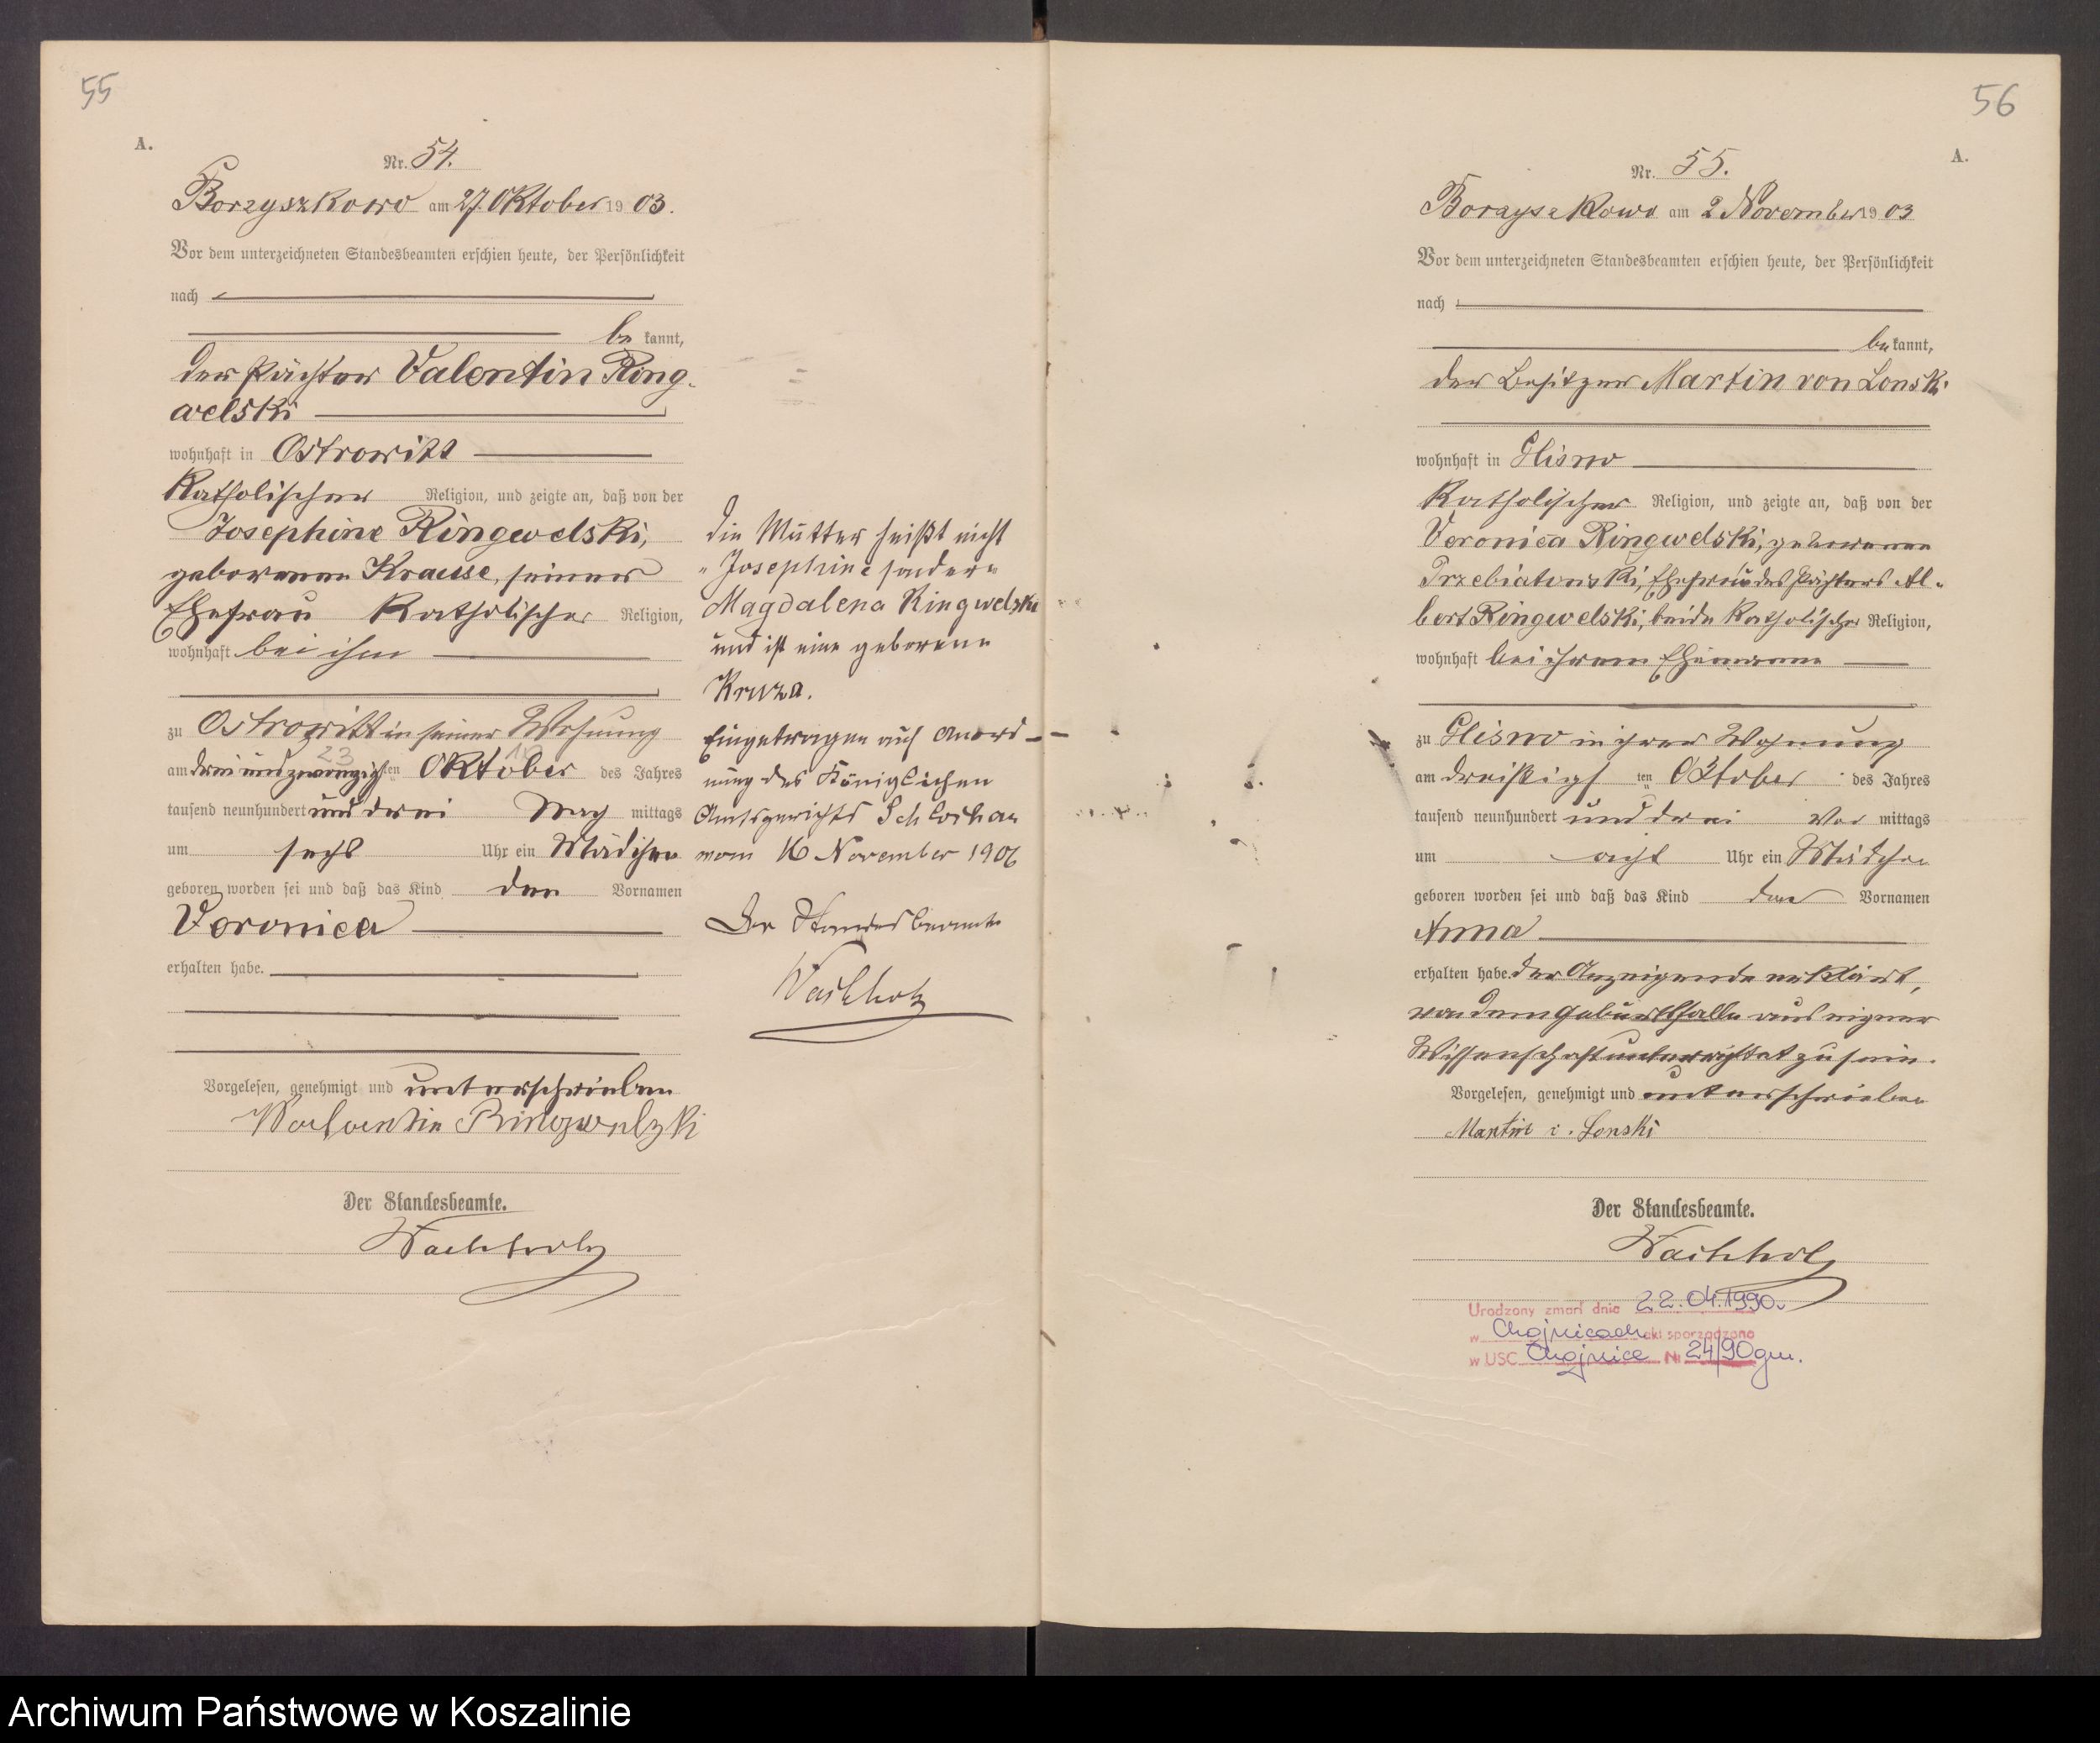 55
A.
Nr. 54.
Borzyszkowo am 27. Oktober 1903.
Vor dem unterzeichneten Standesbeamten erschien heute, der Persönlichkeit
nach
be kannt,
der Pächter Valentin Ring-
welski
wohnhaft in Ostrowitt
Katholischer Religion, und zeigte an, daß von der
Josephine Ringwelski,
geborenen Krause, seiner
Ehefrau Katholischer Religion,
wohnhaft bei ihm
zu Ostrowitt in seiner Wohnung
23 10
am drei und zwanzigsten Oktober des Jahres
tausend neunhundert und drei Nach mittags
um sechs Uhr ein Mädchen
geboren worden sei und daß das Kind den Vornamen
Veronica
erhalten habe.
Vorgelesen, genehmigt und unterschrieben
Valentin Ringwelzki
Der Standesbeamte.
Wachholz
die Mutter heißt nicht
"Josephine sondern
Magdalena Ringwelski
und ist eine geborene
Kruza.
Eingetragen auf Anord-
nung des Königlichen
Amtsgerichts Schlochau
vom 16 November 1906
Der Standesbeamte
Wachholz
56
A.
Nr. 55.
Borzyszkowo am 2 November 1903
Vor dem unterzeichneten Standesbeamten erschien heute, der Persönlichkeit
nach
be kannt,
der Besitzer Martin von Lonski
wohnhaft in Glisno
Katholischer Religion, und zeigte an, daß von der
Veronica Ringwelski, geborenen
Przebiatowski, Ehefrau des Pächters Al-
bert Ringwelski, beide Katholischer Religion,
wohnhaft bei ihrem Ehemanne
zu Glisno in ihrer Wohnung
am dreißigsten Oktober des Jahres
tausend neunhundert und drei Vor mittags
um acht Uhr ein Mädchen
geboren worden sei und daß das Kind den Vornamen
Anna
erhalten habe. der Anzeigende erklärt,
von dem Geburtsfalle aus eigener
Wissenschaft unterrichtet zu sein.
Vorgelesen, genehmigt und unterschrieben
Martin v. Lonski
Der Standesbeamte.
Wachholz
Urodzony zmarł dnia 22.04.1990.
w Chojnicach akt sporządzono
w USC Chojnice Nr 24/90 gm.
Archiwum Państwowe w Koszalinie